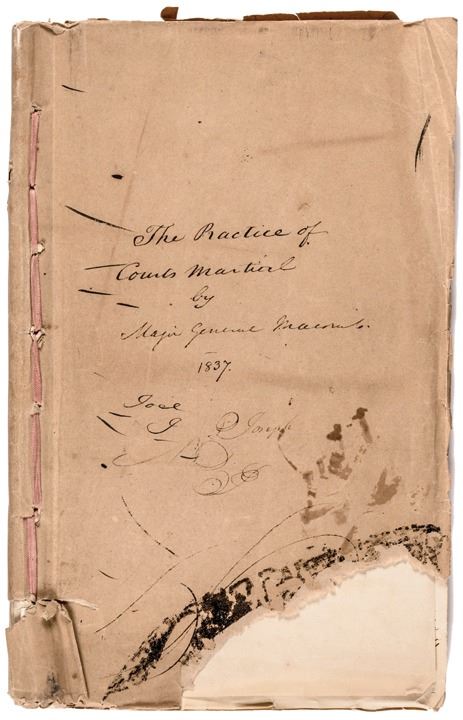 The Practice of
Courts Martial
by
Major General Macomb.
1837.
Joel
J Joseph